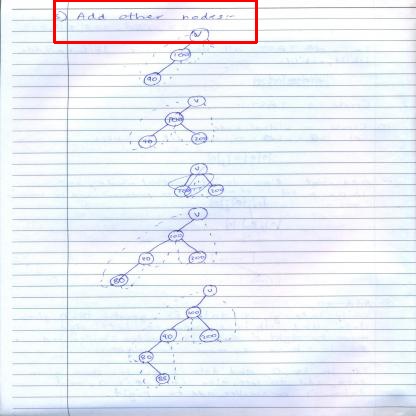 Add other nodes:-
100
90
V
100
90
200
V
200
V
100
90
200
80
V
100
90
200
80
85